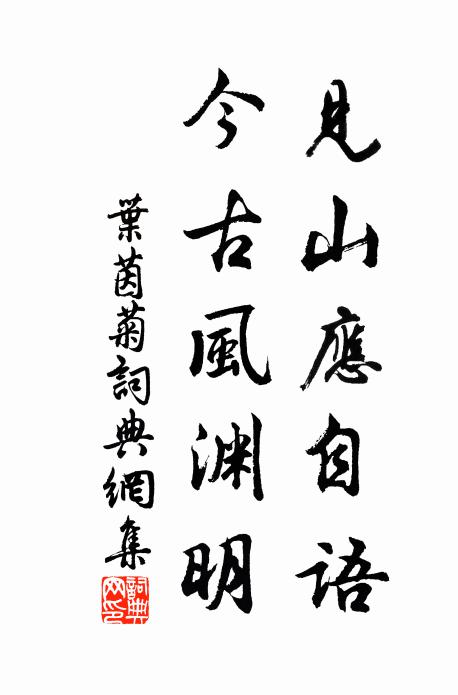 見山應自語
今古風渊明
葉茵菊詞典網集
詞典网印